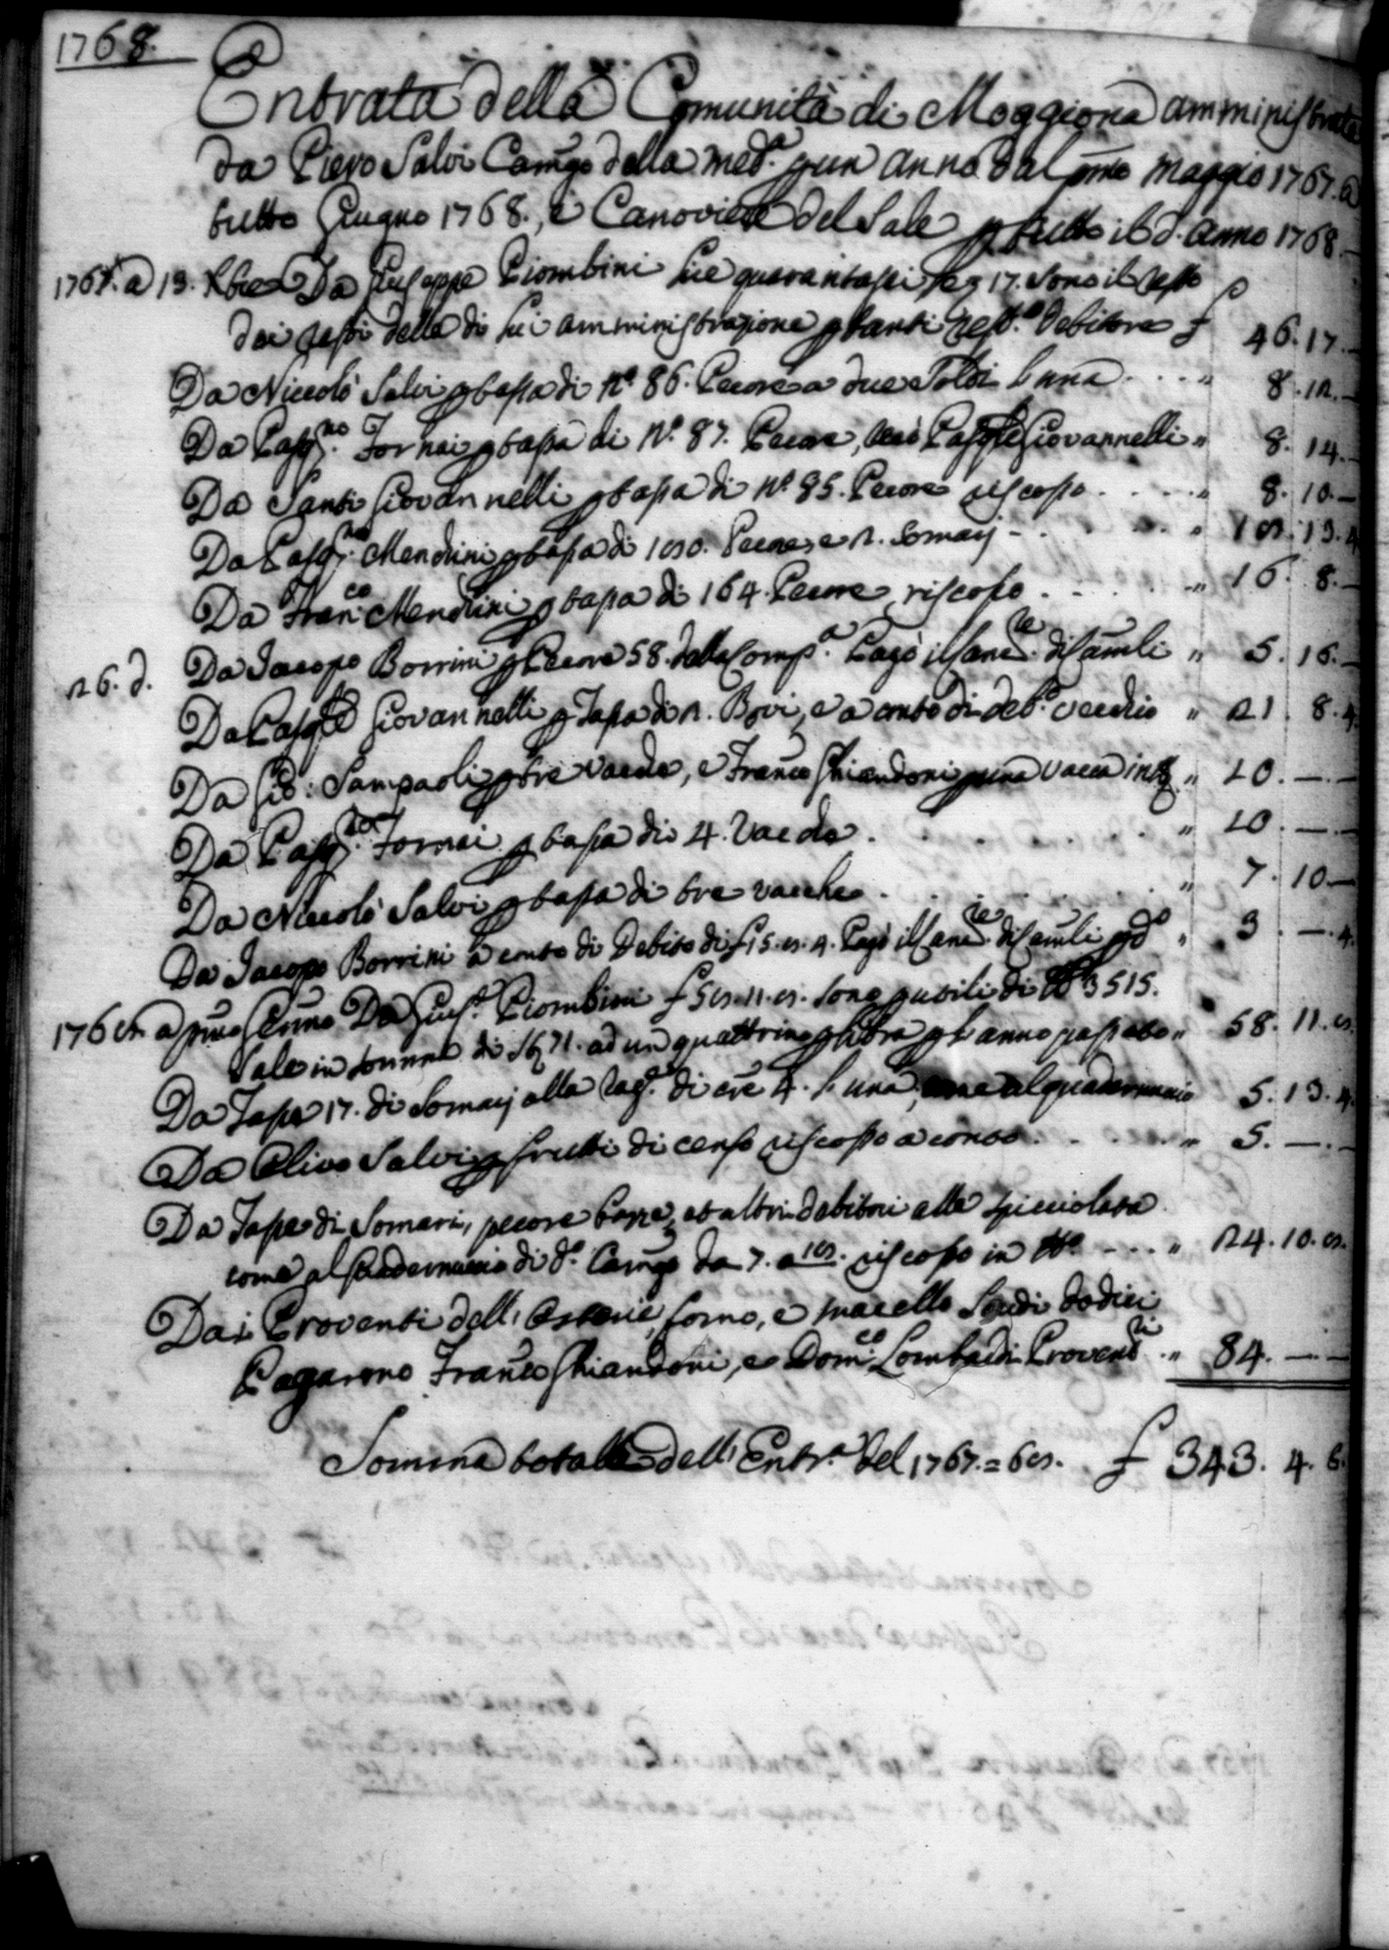 1768.
Entrata della Comunità di Moggiona amministrata
da Piero Salvi Camgo della medª. p un anno dal pmo Maggio 1767. a
tutto Giugno 1768., e Canoviere del Sale p tutto il d. Anno 1768.
1767. a 13. Xbre Da Giuseppe Piombini lire quarantasei e 17. sono il resto
dei resti della di lui amministrazione p tanti restº. debitore £ 46.17.—
Da Niccolò Salvi p tassa di Nº. 86. Pecore a due soldi l'una . . . " 8.12.—
Da Passno. Fornai p tassa di Nº. 87. Pecore, Giovannelli " 8.14.—
Da Santi Giovannelli p tassa di Nº. 85. Pecore riscosso . . . " 8.10.—
Da Mendrini p tassa di 180. Pecore, e 2. Somarj - . . . " 18.13.4
Da Franco. Mendrini p tassa di 164. Pecore riscosso . . . " 16. 8.—
26. d. Da Jacopo Borrini p Pecore 58. della Compª. Pagò il Cane " 5.16.—
Da Giovannelli p Tassa di 2. Bovi, e a conto di debº. vecchio " 21. 8.4
Da Gio: Sampaoli p tre vacche, e Franco Ghiandoni p una vacca in " 10.—.—
Da Fornai p tassa di 4. Vacche . . . " 10.—.—
Da Niccolò Salvi p tassa di tre vacche . . . " 7.10.—
Da Jacopo Borrini a conto di Debito di £ 15.8.4. Pagò il Cane " 3.—.4
1768. a pmo Da Giuse. Piombini £ 58.11.8. sono p utili di lb 3515.
Sale in somma di 71. ad un quattrino p libra p l'anno passato " 58.11.8
Da Tasse 17. di Somarj alla ragº. di cre 4. l'una, come al quadernuccio 5.13.4
Da Olivo Salvi p frutti di censo riscosso a conto . . . " 5.—.—
Da Tasse di Somari, pecore e altri debitori alla spicciolata
come al Quadernuccio di dº. Camgo da 7. a 18. riscosso in tto - . . . " 24.10.8.
Dai Proventi dell'Osterie, forno, e macello Scudi dodici
Pagarono Franco Ghiandoni, e Domco. Lombardi Proventi. " 84.—.—
Somma totale dell'Entrª. del 1767.=68. £ 343.4.6.